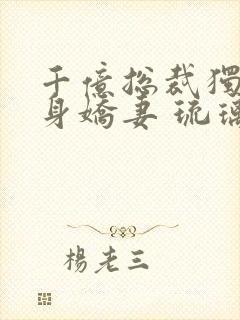 千億總裁獨
身嬌妻 琉璃
楊老三